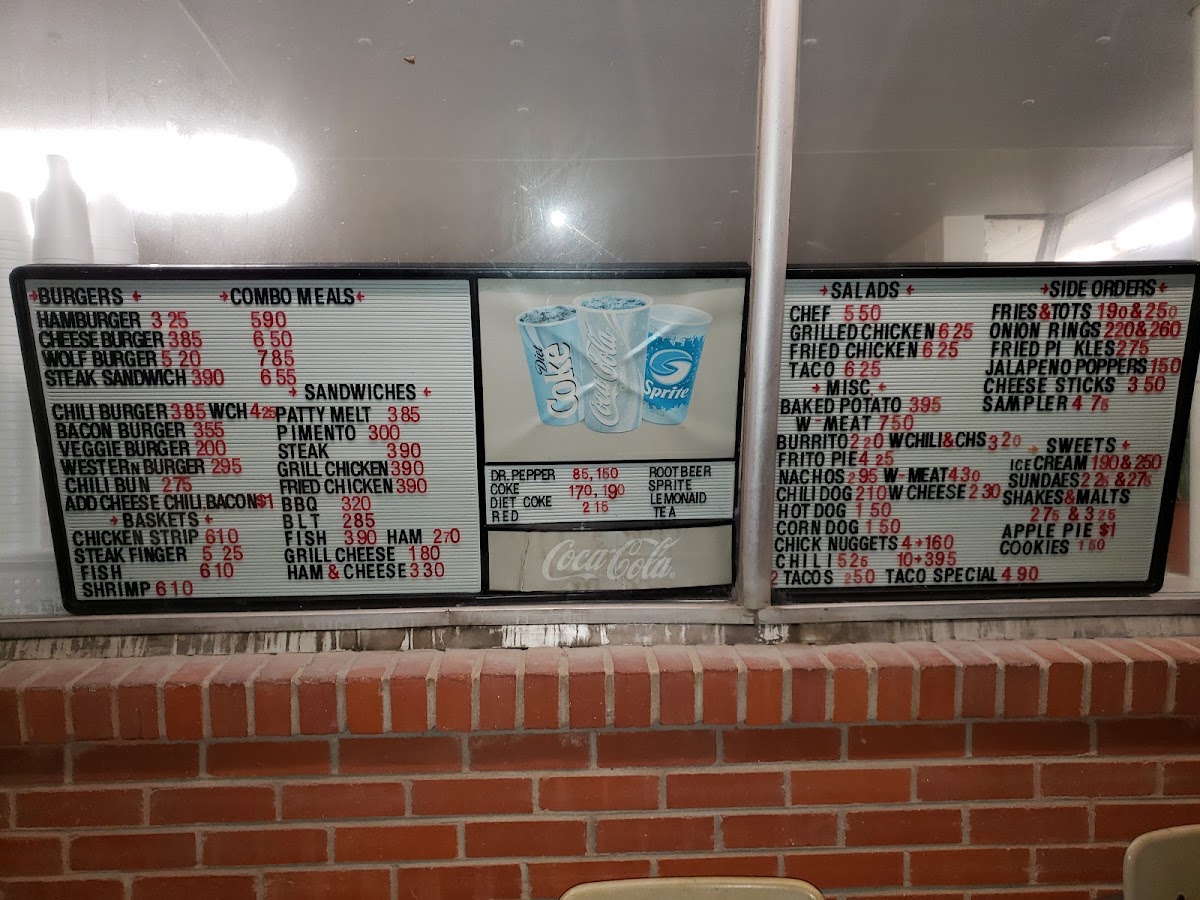 BURGERS
COMBO MEALS
HAMBURGER 3 25 590
CHEESE BURGER 385 6 50
WOLF BURGER 5 20 7 85
STEAK SANDWICH 390 6 55
SANDWICHES
CHILI BURGER 385 WCH 425
BACON BURGER 355
VEGGIE BURGER 200
WESTERN BURGER 295
CHILI BUN 275
ADD CHEESE CHILI, BACON $1
BASKETS
CHICKEN STRIP 610
STEAK FINGER 5 25
FISH 610
SHRIMP 610
PATTY MELT 385
PIMENTO 300
STEAK 390
GRILL CHICKEN 390
FRIED CHICKEN 390
BBQ 320
BLT 285
FISH 390 HAM 270
GRILL CHEESE 180
HAM & CHEESE 330
Diet Coke
Coca-Cola
Sprite
DR. PEPPER 85, 150 ROOTBEER
COKE 170, 190 SPRITE
DIET COKE 215 LEMONAID
RED TEA
Coca-Cola
SALADS
CHEF 5 50
GRILLED CHICKEN 6 25
FRIED CHICKEN 6 25
TACO 6 25
MISC.
BAKED POTATO 395
W-MEAT 750
BURRITO 220 WCHILI&CHS 320
FRITO PIE 4 25
NACHOS 295 W-MEAT 430
CHILI DOG 210 W CHEESE 230
HOT DOG 150
CORN DOG 150
CHICK NUGGETS 4→160
CHILI 525 10→395
2 TACOS 250 TACO SPECIAL 490
SIDE ORDERS
FRIES&TOTS 190 & 250
ONION RINGS 220&260
FRIED PI KLES 275
JALAPENO POPPERS 150
CHEESE STICKS 3 50
SAMPLER 4 75
SWEETS
ICE CREAM 190 & 250
SUNDAES 225 &275
SHAKES&MALTS
275 & 325
APPLE PIE $1
COOKIES 160